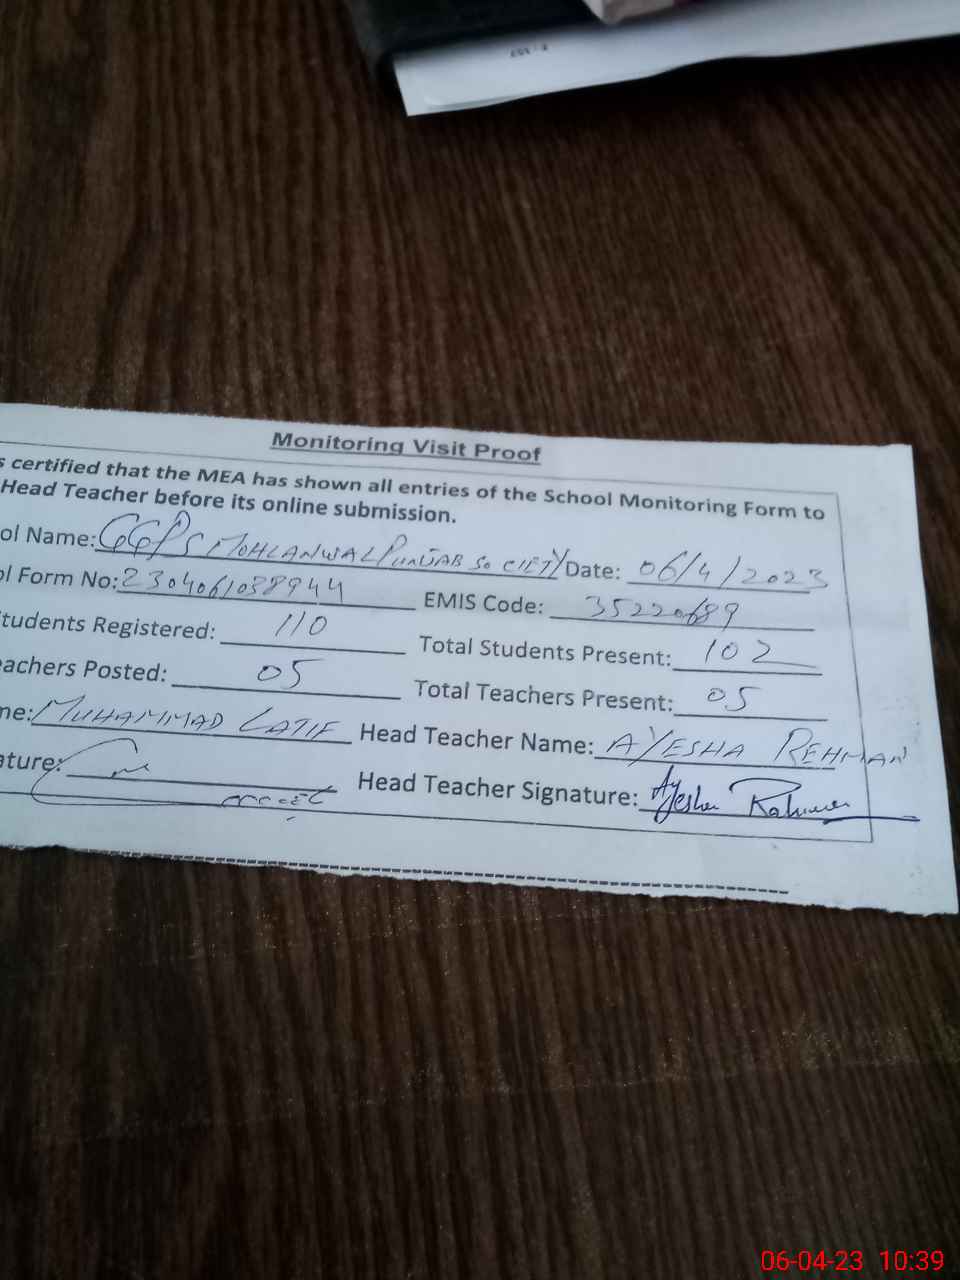 Monitoring Visit Proof
s certified that the MEA has shown all entries of the School Monitoring Form to
Head Teacher before its online submission.
ol Name: GGPS MOHLANWAL PUNJAB SOCIETY Date: 06/4/2023
ol Form No: 2304061038944 EMIS Code: 35220689
tudents Registered: 110 Total Students Present: 102
eachers Posted: 05 Total Teachers Present: 05
me: MUHAMMAD LATIF Head Teacher Name: AYESHA REHMAN
ature: Head Teacher Signature: Ayesha Rahman
06-04-23 10:39